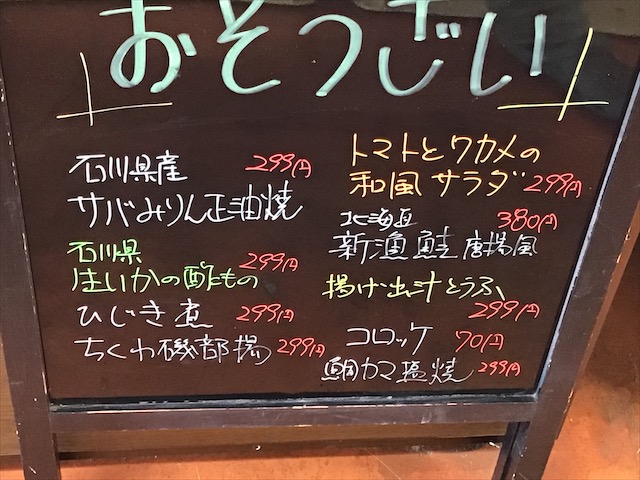 おそうざい
石川県産 299円
サバみりん正油焼
石川県
ほいかの酢もの 299円
ひじき煮 299円
ちくわ磯部揚 299円
トマトとワカメの
和風サラダ 299円
北海道 380円
新漁鮭唐揚風
揚げ出汁とうふ
299円
コロッケ 70円
鯛カマ塩焼 299円